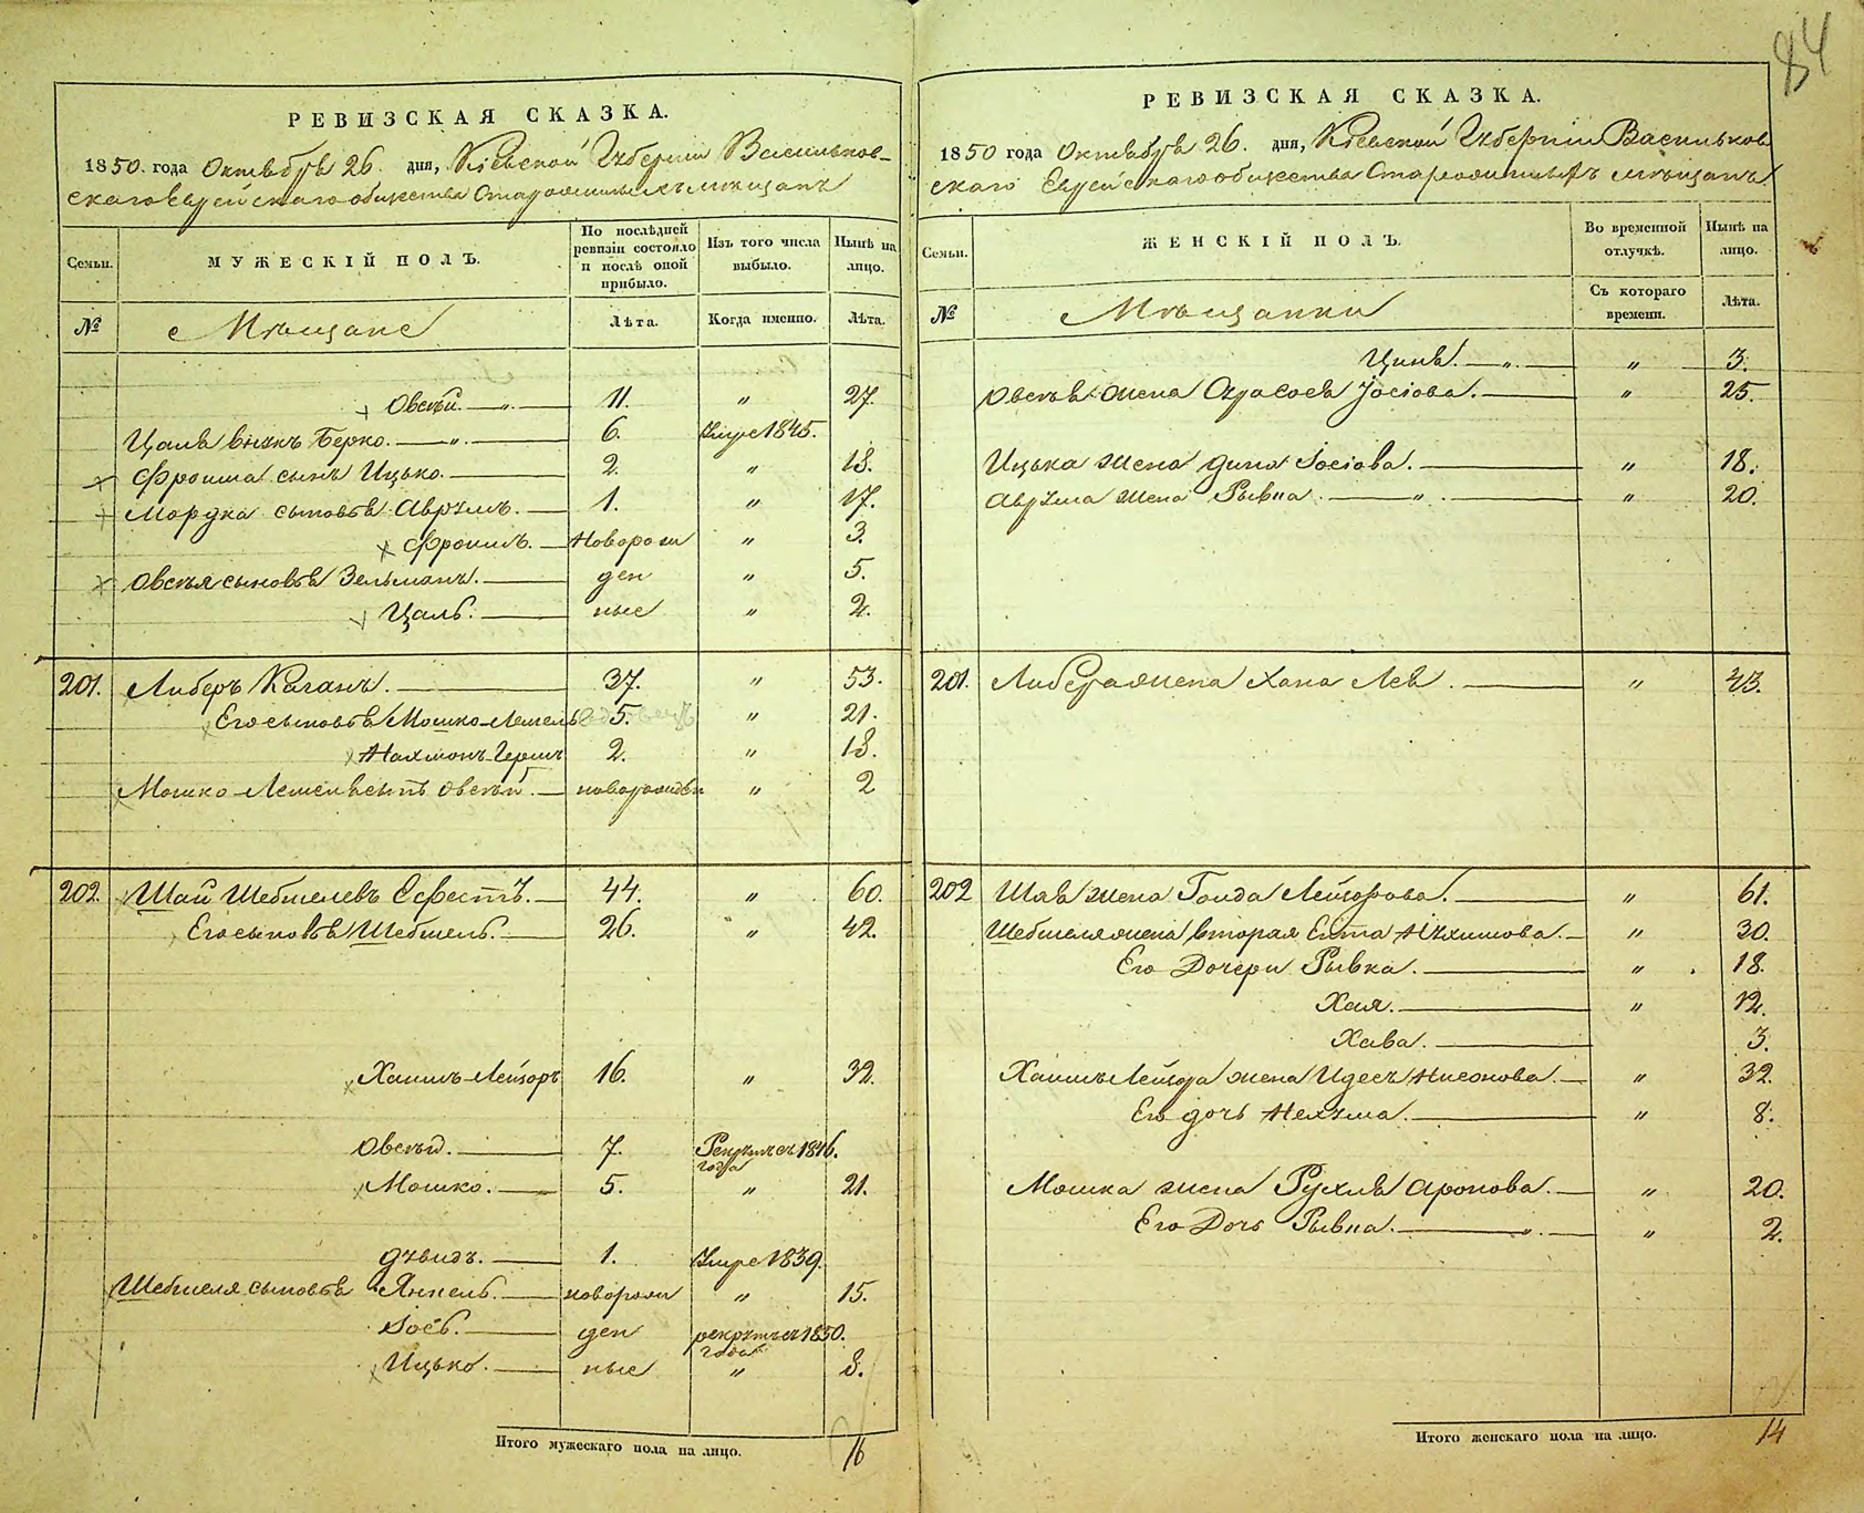 84
РЕВИЗСКАЯ СКАЗКА.
1850. года Октября 26. дня, Кіевской Губерніи Васильков-
скаго Еврейскаго общества Старожилыхъ мѣщанъ
Семьи.
МУЖЕСКІЙ ПОЛЪ.
По послѣдней ревизіи состояло и послѣ оной прибыло.
Изъ того числа выбыло.
Нынѣ на лицо.
№
Мѣщане
Лѣта.
Когда именно.
Лѣта.
Овсѣй. —„— 11. „ 27.
Цаля внукъ Берко. —„— 6. Умре 1845.
Фроима сынъ Ицько. — 2. „ 18.
Мордка сыновья Аврумъ. — 1. „ 17.
Фроимъ. — Новорож „ 3.
Овсѣя сыновья Зельманъ. — ден „ 5.
Цаль. — ные „ 2.
201. Либеръ Каганъ. — 37. „ 53.
Его сыновья Мошко-Лемель 5. „ 21.
Нахмонъ-Герш 2. „ 18.
Мошко-Лемеля сынъ Овсѣй. — новорожден „ 2
202. Шай Шебшелевъ — 44. „ 60.
Его сыновья Шебшель. — 26. „ 42.
Хаимъ-Лейзоръ 16. „ 32.
Овсѣй. — 7. Рекрутъ съ 1846. года
Мошко. — 5. „ 21.
Дувидъ. — 1. Умре 1839.
Шебшеля сыновья Янкель. — новорож „ 15.
Іось. — ден рекрутъ съ 1850. года
Ицько. — ные „ 8.
Итого мужескаго пола на лицо. 16
РЕВИЗСКАЯ СКАЗКА.
1850 года Октября 26. дня, Кіевской Губерніи Васильков
скаго Еврейскаго общества Старожилыхъ мѣщанъ.
Семьи.
ЖЕНСКІЙ ПОЛЪ.
Во временной отлучкѣ.
Нынѣ на лицо.
№
Мѣщанки
Съ котораго времени.
Лѣта.
Ципя. —„— „ 3.
Овсѣя жена Сура Іосіова. — „ 25.
Ицька жена Дина Іосіова. — „ 18.
Аврума жена Рывка. —„— „ 20.
201. Либера жена Хана Лея. — „ 43.
202 Шая жена Голда Лейзорова. — „ 61.
Шебшеля жена вторая Ента Нухимова. — „ 30.
Его Дочери Рывка. — „ 18.
Хая. — „ 12.
Хава. — 3.
Хаимъ Лейзора жена Идесъ Нисонова. — „ 32.
Его дочь Нехума. — „ 8.
Мошка жена Рухля Аронова. — „ 20.
Его Дочь Рывка. —„— „ 2.
Итого женскаго пола на лицо. 14